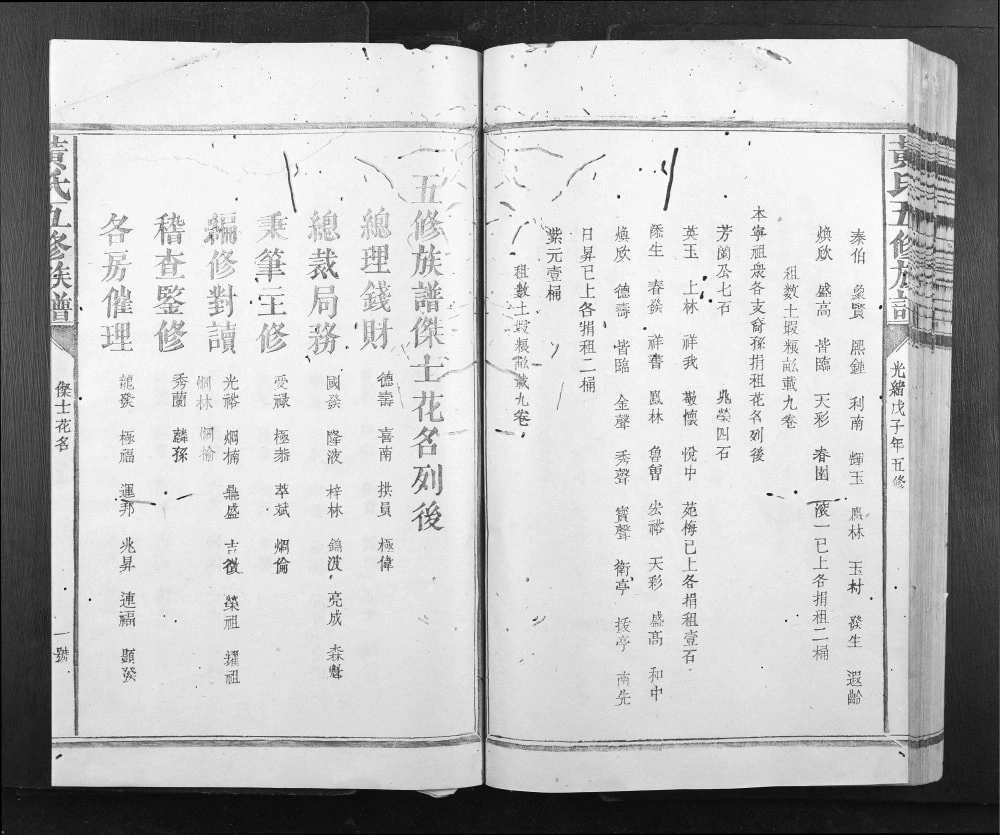 黃氏五修族譜
光緒戊子年五修
泰伯 象賢 熙鍾 利南 輝玉 鳳林 玉村 發生 遐齡
煥欣 盛高 皆臨 天彩 春園 滚一已上各捐租二桶
租數土塅糧畝載九卷
本寧祖眾各支裔孫捐租花名列後
芳蘭公七石 兆榮四石
英玉 上林 祥我 敬懷 悅中 苑梅已上各捐租壹石
添生 春發 祥書 鳳林 魯曾 宏裕 天彩 盛高 和中
煥欣 德壽 皆臨 金聲 秀聲 賓聲 衛亭 援亭 南先
日昇已上各捐租二桶
紫元壹桶
租數土塅糧畝載九卷
五修族譜傑士花名列後
總理錢財 德壽 喜南 拱員 極偉
總裁局務 國發 隆液 梓林 錦波 亮成 森魁
秉筆主修 受祿 極恭 萃斌 炯倫
編修對讀 光裕 炯楠 鼎盛 吉徵 榮祖 耀祖
炯林 炯楡
稽查鑒修 秀蘭 麟孫
各房催理 龍發 極福 運邦 兆昇 連福 顯發
黃氏五修族譜
傑士花名
一號